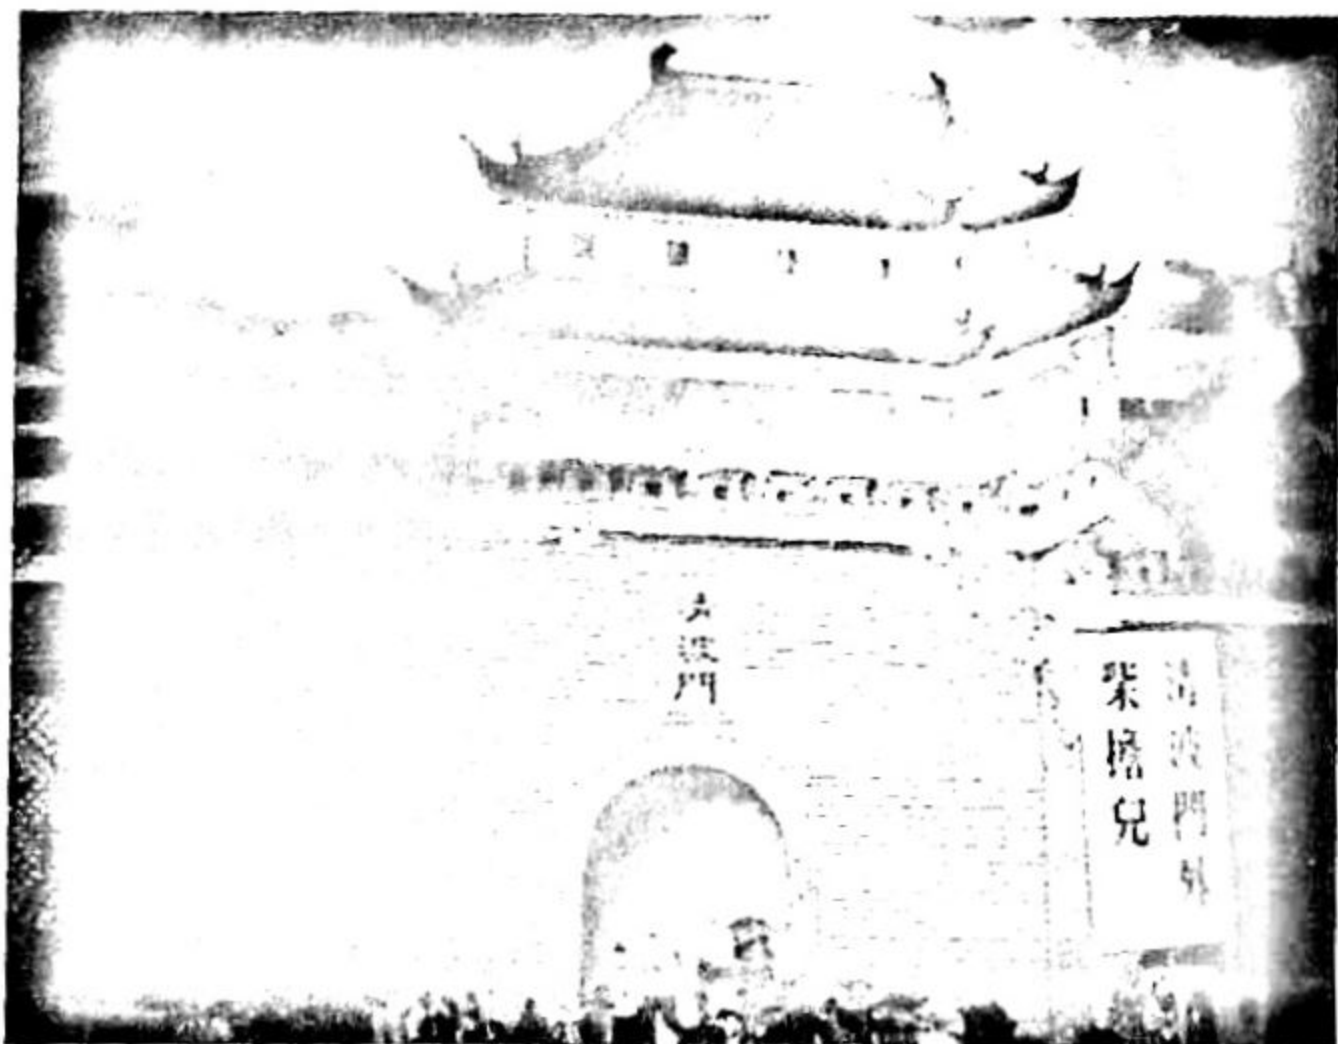 波門
清波門外
柴擔兒